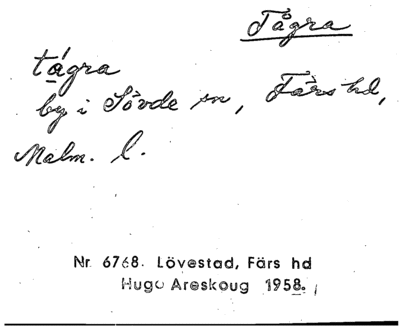 Tågra
tágra
by i Sövde sn, Färs hd,
Malm. l.
Nr 6768. Lövestad, Färs hd
Hugo Areskoug 1958.